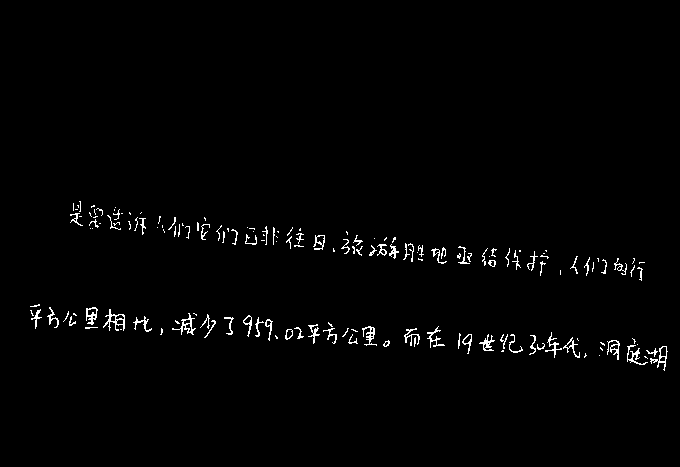 是要告诉人们它们已非往日,旅游胜地亟待保护,人们的行
平方公里相比,减少了959.02平方公里。而在19世纪30年代,洞庭湖